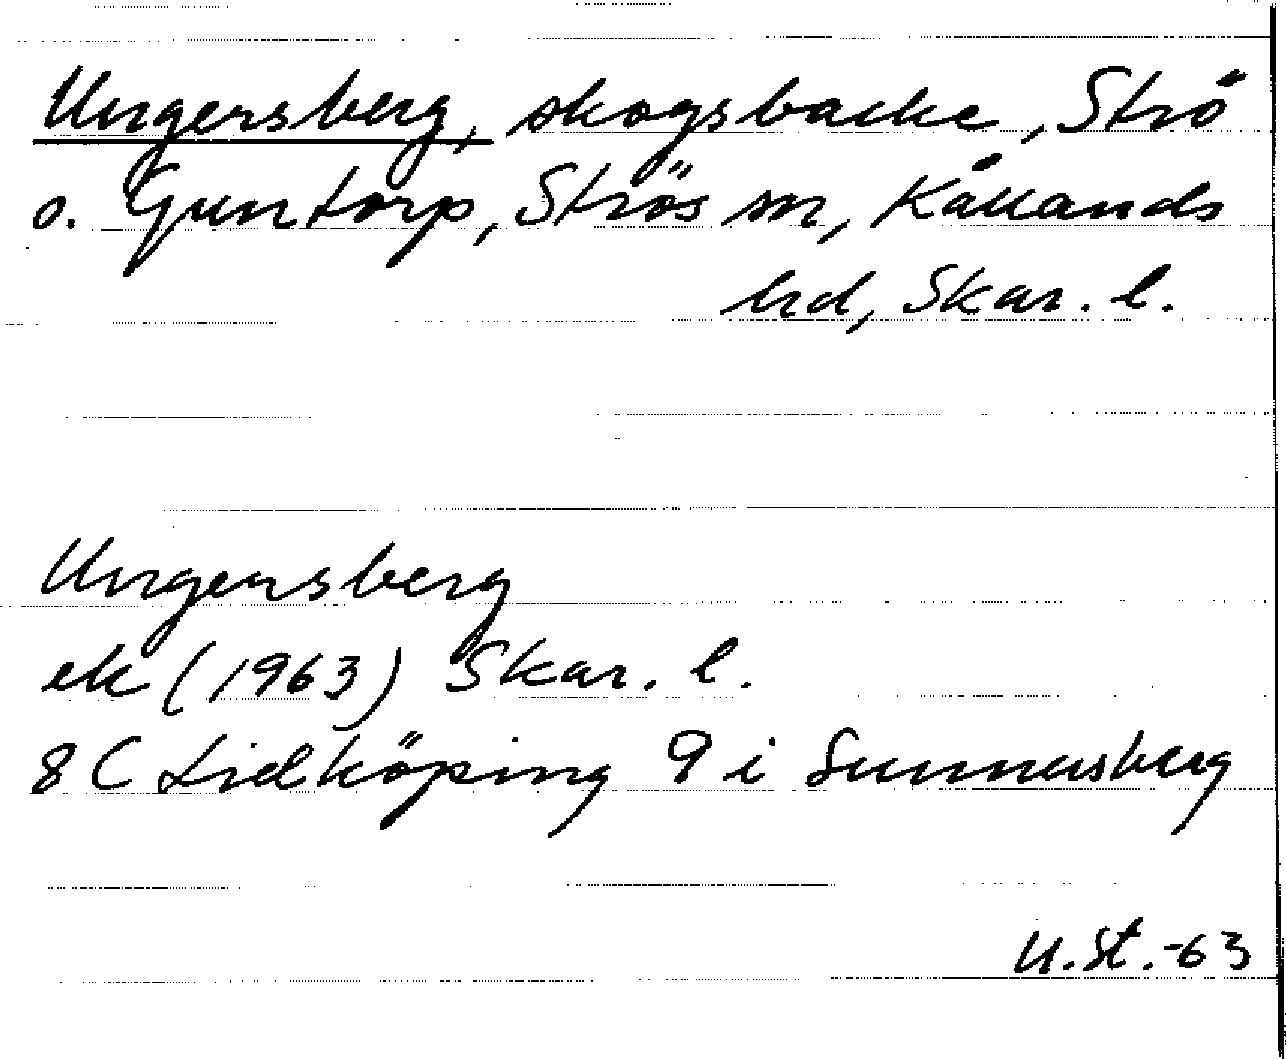 Ungersberg, skogsbacke, Strö
o. Guntorp, Ströss sn, Kållands
hd, Skar. l.
Ungersberg
ek (1963) Skar. l.
8C Lidköping 9 i Sunnersberg
U.St.-63